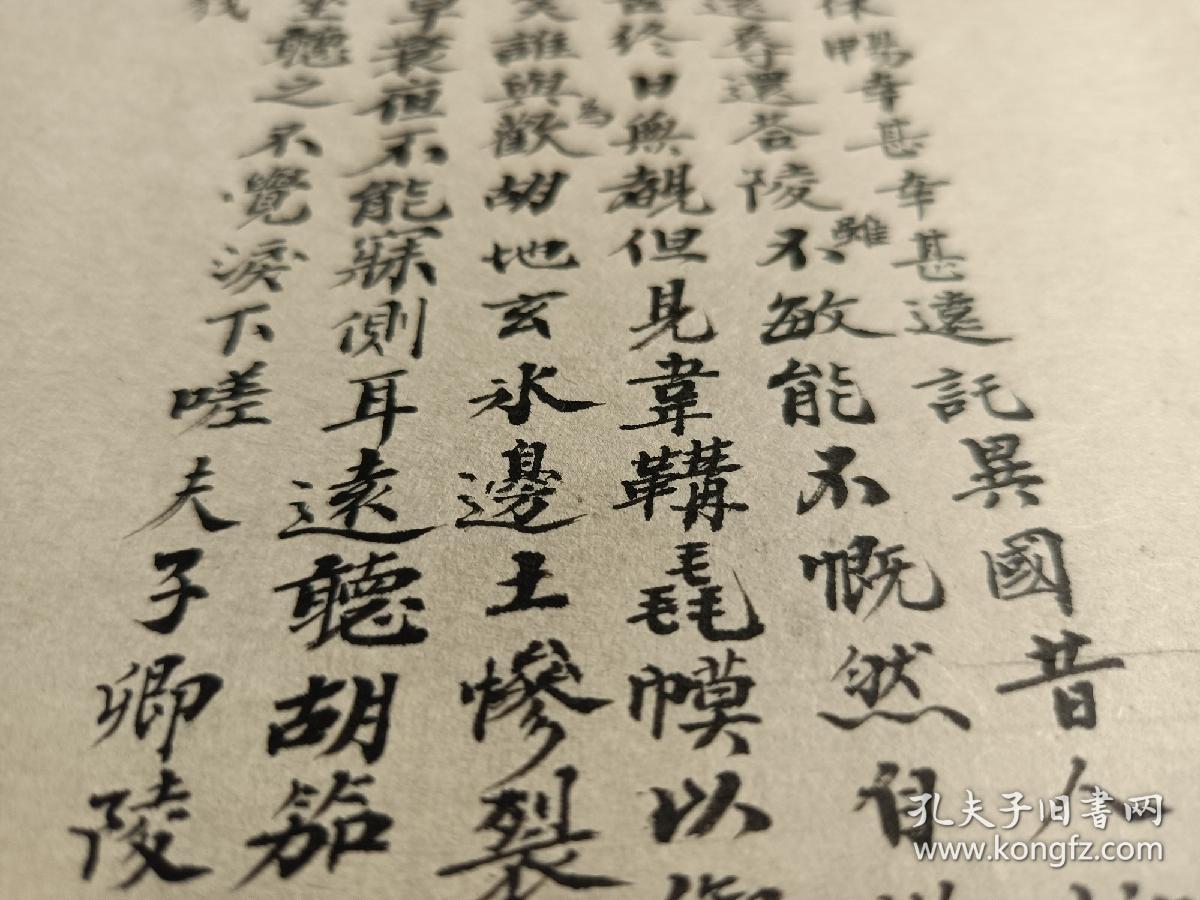 暢幸甚幸甚遠託異國昔人
辱還答陵雖不敏能不慨然自
終日無覩但見韋韝毳幙以
誰與為歡胡地玄氷邊土慘裂
草衰夜不能寐側耳遠聽胡笳
聽之不覺淚下嗟夫子卿陵
孔夫子旧书网
www.kongfz.com